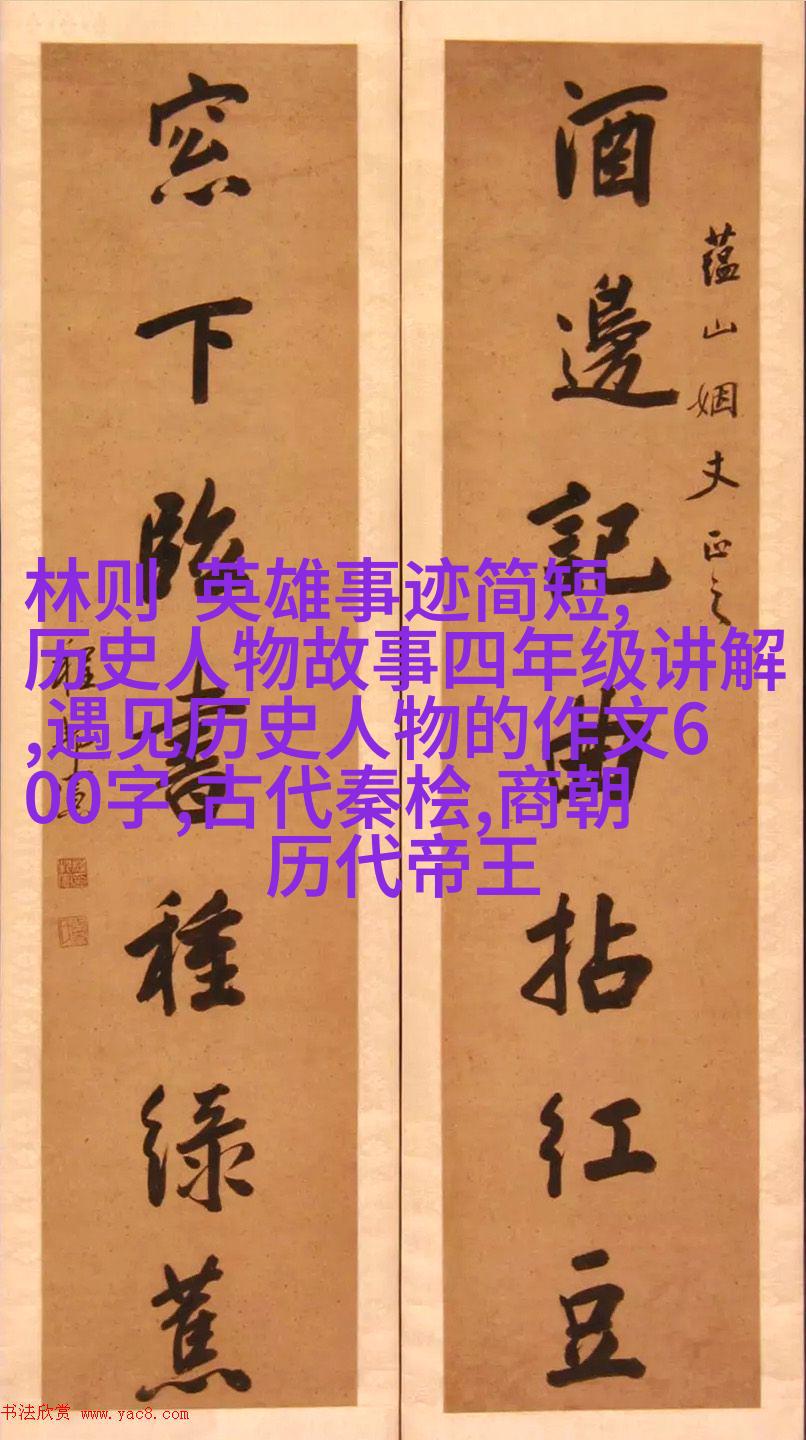 酒邊記曲拈紅豆
蕴山姻丈正之
窓下臨書種緑蕉
林则 英雄事迹简短,
历史人物故事四年级讲解
,遇见历史人物的作文6
00字,古代秦桧,商朝
历代帝王
书法欣赏 www.yac8.com